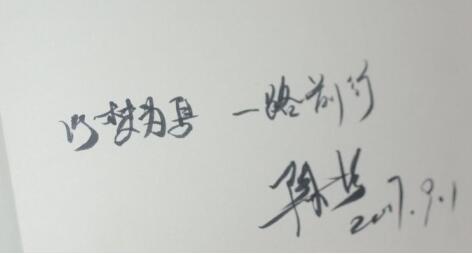 以梦为马 一路前行
2017.9.1